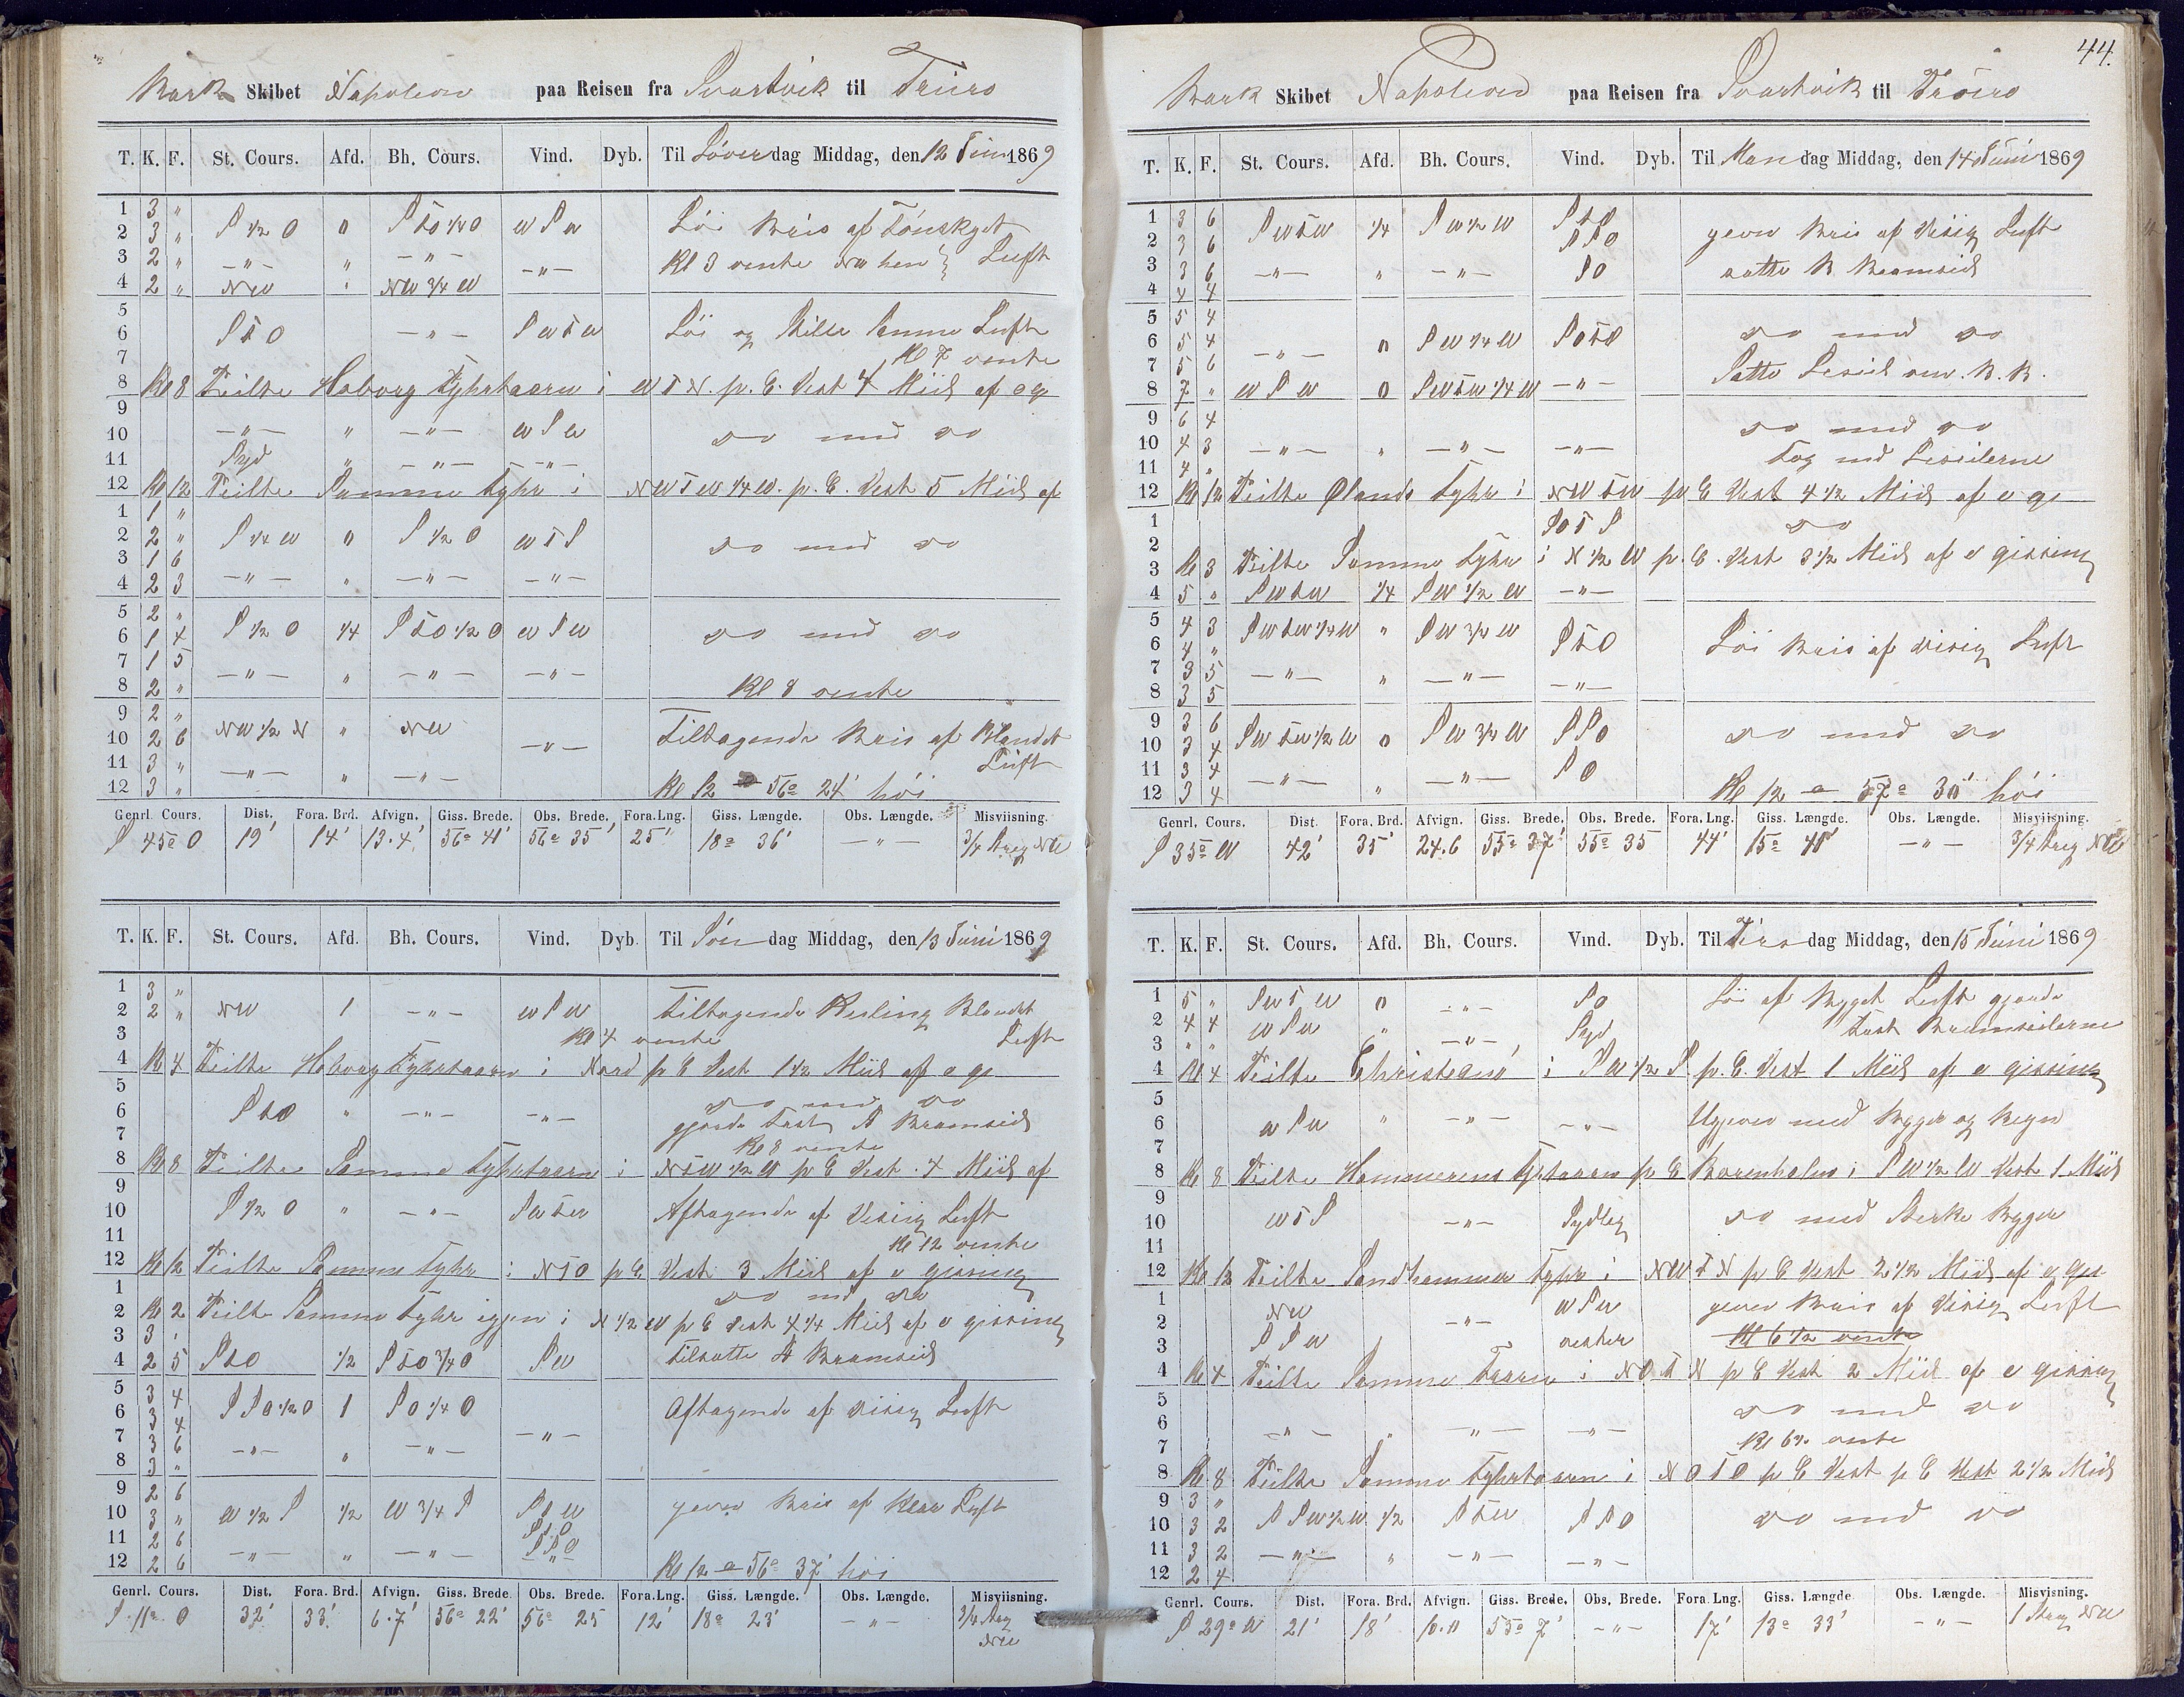 Bark Skibet Napoleon paa Reisen fra Svartvik til Truro
T. K. F. St. Cours. Afd. Bh. Cours. Vind. Dyb. Til Löverdag Middag, den 12 Juni 1869
1 3 "
2 3 " S 1/2 O 0 StO 1/2 O WSW Löi Bris af Tönskyet
3 2 " — " — " — " — — " — Kl 3 vente NW hen } Luft
4 2 " NW " NW 3/4 W
5
6 StO — " — SWtW Löi og Stille Samme Luft
7 Kl 7 vente
8 Kl 8 Peilte Hoborg Fyhrtaarn i WtN. p. C. Vest 4 Miil af o g
9
10 — " — " — " — WSW do med do
11 Syd " — " — — " —
12 Kl 12 Peilte Samme Fyhr i NWtW 1/4 W. p. C. Vest 5 Miil af
1 1 "
2 2 " S 1/4 W 0 S 1/2 O WtS do med do
3 1 6
4 2 3 — " — " — " — — " —
5 2 "
6 1 4 S 1/2 O 1/4 StO 1/2 O WSW do med do
7 1 5
8 2 " — " — " — " — — " — Kl 8 vente
9 2 "
10 2 6 NW 1/2 N " NW — " — Tiltagende Bris af Blandet
11 3 " — " — " — " — Luft
12 3 " Kl 12 56° 24' höi
Genrl. Cours. Dist. Fora. Brd. Afvign. Giss. Brede. Obs. Brede. Fora. Lng. Giss. Længde. Obs. Længde. Misviisning.
S 45° O 19' 14' 13.4' 56° 41' 56° 35' 25' 18° 36' — " — 3/4 Streg NW
T. K. F. St. Cours. Afd. Bh. Cours. Vind. Dyb. Til Söndag Middag, den 13 Juni 1869
1 3 "
2 2 " NW 1 — " — WSW Tiltagende Kuling Blandet
3 Kl 4 vente Luft
4 Kl 4 Peilte Hoborg Fyhrtaarn i Nord p C Vest 1 1/2 Miil af o g
5 do med do
6 StO " — " — — " — gjorde fast F Bramseil
7 Kl 8 vente
8 Kl 8 Peilte Samme Fyhrtaarn i NtW 1/2 W p C Vest. 4 Miil af
9
10 S 1/2 O " — " — SWtW Aftagende af Disig Luft
11 Kl 12 vente
12 Kl 12 Peilte Samme Fyhr i NtO p C Vest 3 Miil af o gissing
1 do med do
2 Kl 2 Peilte Samme Fyhr igjen i N 1/2 W p C Vest 4 1/4 Miil af o gissing
3 3 '
4 2 5 StO 1/2 StO 3/4 O SW tilsatte F Bramseil
5 3 4
6 3 4 SSO 1/2 O 1 SO 1/4 O Aftagende af disig Luft
7 3 6 — " — " — " — — " —
8 3 "
9 2 6
10 3 " W 1/2 S 1/2 W 3/4 S StW gever Bris af Klar Luft
11 2 6 SSO
12 2 6 — " — " — " — — " — Kl 12 56° 37' höi
Genrl. Cours. Dist. Fora. Brd. Afvign. Giss. Brede. Obs. Brede. Fora. Lng. Giss. Længde. Obs. Længde. Misviisning.
S 11° O 32' 33' 6.7' 56° 22' 56° 25 12' 18° 23' — " — 3/4 Streg NW
44.
Bark Skibet Napoleon paa Reisen fra Svartvik til Truro
T. K. F. St. Cours. Afd. Bh. Cours. Vind. Dyb. Til Mandag Middag, den 14 Juni 1869
1 3 6 StO
2 3 6 SWtW 1/4 SW 1/2 W SSO gever Bris af disig Luft
3 3 6 — " — " — " — SO satte B Bramseil
4 4 4
5 5 4
6 5 4 — " — 0 SW 1/4 W SOtO do med do
7 5 6 Satte Leseil om. B. B.
8 7 " WSW 0 SWtW 1/4 W — " —
9 6 4 do med do
10 4 3 — " — " — " — — " — Tog ind Leseilerne
11 4 "
12 Kl 12 Peilte Ølands Fyhr i NWtW p C Vest 4 1/2 Miil af o g
1 SOtS do
2
3 Kl 3 Peilte Samme Fyhr i N 1/2 W p. C. Vest 3 1/2 Miil af o gissing
4 5 " SWtW 1/4 SW 1/2 W — " —
5 4 3 SWtW 1/4 W " SW 3/4 W
6 4 " StO Löi Bris af disig Luft
7 3 5 — " — " — " — — " —
8 3 5
9 3 6
10 3 4 SWtW 1/2 W 0 SW 3/4 W SSO do med do
11 3 4 — " — " — " — SO
12 3 4 Kl 12 57° 30' höi
Genrl. Cours. Dist. Fora. Brd. Afvign. Giss. Brede. Obs. Brede. Fora. Lng. Giss. Længde. Obs. Længde. Misviisning.
S 35° W 42' 35' 24.6 55° 37' 55° 35 44' 15° 41' — " — 3/4 Streg NW
T. K. F. St. Cours. Afd. Bh. Cours. Vind. Dyb. Til Tirsdag Middag, den 15 Juni 1869
1 5 " SWtW 0 — " — SO Löi af Bygget Luft gjorde
2 4 4 WSW " Syd fast Bramseilerne
3 " " — " —
4 Kl 4 Peilte Christiansö i SW 1/2 S p. C. Vest 1 Miil af o gissing
5
6 WSW " — " — — " — Ugever med Bygger og Regn
7
8 Kl 8 Peilte Hammerens Fyrtaarn p C Borenholm i SW 1/2 W Vest 1 Miil
9
10 WtS — " — Sydleg do med Sterke Bygger
11
12 Kl 12 Peilte Sandhammer Fyhr i NWtN p C Vest 2 1/2 Miil af o gis
1 NW WSW gever Bris af disig Luft
2 — " —
3 SSW vester Kl 6 1/2 vente
4 Kl 4 Peilte Samme Taarn i NOtN p C Vest 2 Miil af o gissing
5 do med do
6 — " — " — " — — " —
7 Kl 6 1/2 vente
8 Kl 8 Peilte Samme Fyhrtaarn i NOtO p C Vest p C Vest 2 1/2 Miil
9 3 "
10 3 2 SSW 1/2 W 1/2 StW SSO do med do
11 3 2 — " — " — " — — " —
12 2 4
Genrl. Cours. Dist. Fora. Brd. Afvign. Giss. Brede. Obs. Brede. Fora. Lng. Giss. Længde Obs. Længde. Misvisning.
S 29° W 21' 18' 10.0 55° 7' — " — 17' 13° 33' — " — 1 Streg NW